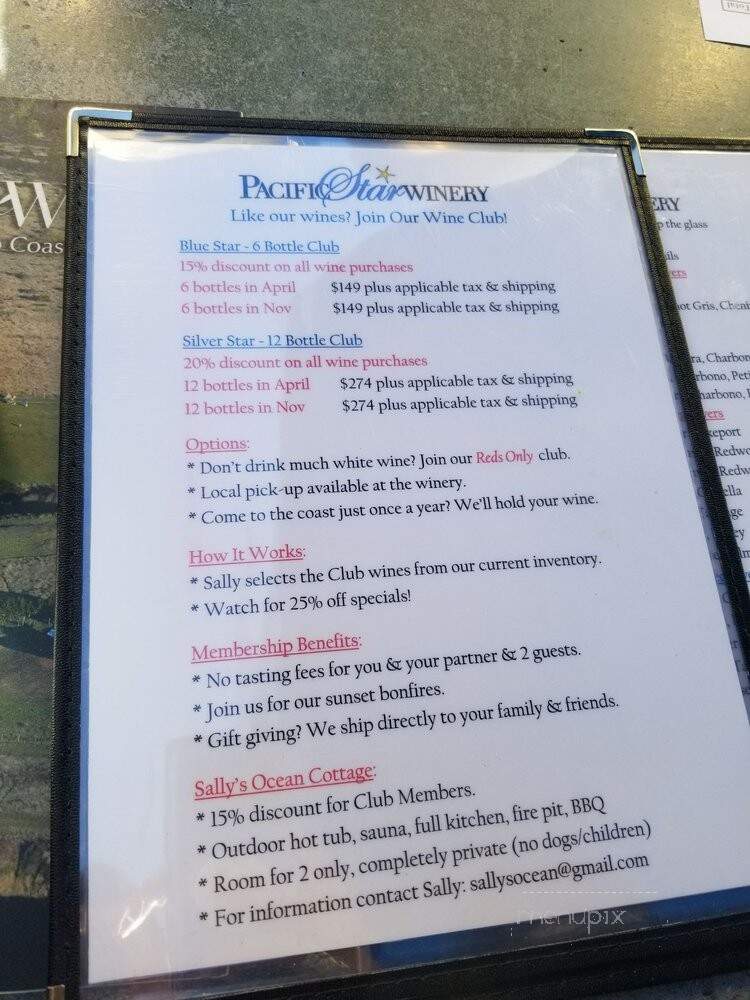 PACIFIC Star WINERY
Like our wines? Join Our Wine Club!
Blue Star - 6 Bottle Club
15% discount on all wine purchases
6 bottles in April $149 plus applicable tax & shipping
6 bottles in Nov $149 plus applicable tax & shipping
Silver Star - 12 Bottle Club
20% discount on all wine purchases
12 bottles in April $274 plus applicable tax & shipping
12 bottles in Nov $274 plus applicable tax & shipping
Options:
* Don't drink much white wine? Join our Reds Only club.
* Local pick-up available at the winery.
* Come to the coast just once a year? We'll hold your wine.
How It Works:
* Sally selects the Club wines from our current inventory.
* Watch for 25% off specials!
Membership Benefits:
* No tasting fees for you & your partner & 2 guests.
* Join us for our sunset bonfires.
* Gift giving? We ship directly to your family & friends.
Sally's Ocean Cottage:
* 15% discount for Club Members.
* Outdoor hot tub, sauna, full kitchen, fire pit, BBQ
* Room for 2 only, completely private (no dogs/children)
* For information contact Sally: sallysocean@gmail.com
menupix
W
Coas
ERY
the glass
ot Gris, Cheni
ra, Charbon
rbono, Peti
harbono,
vers
eport
Redwo
Redw
ella